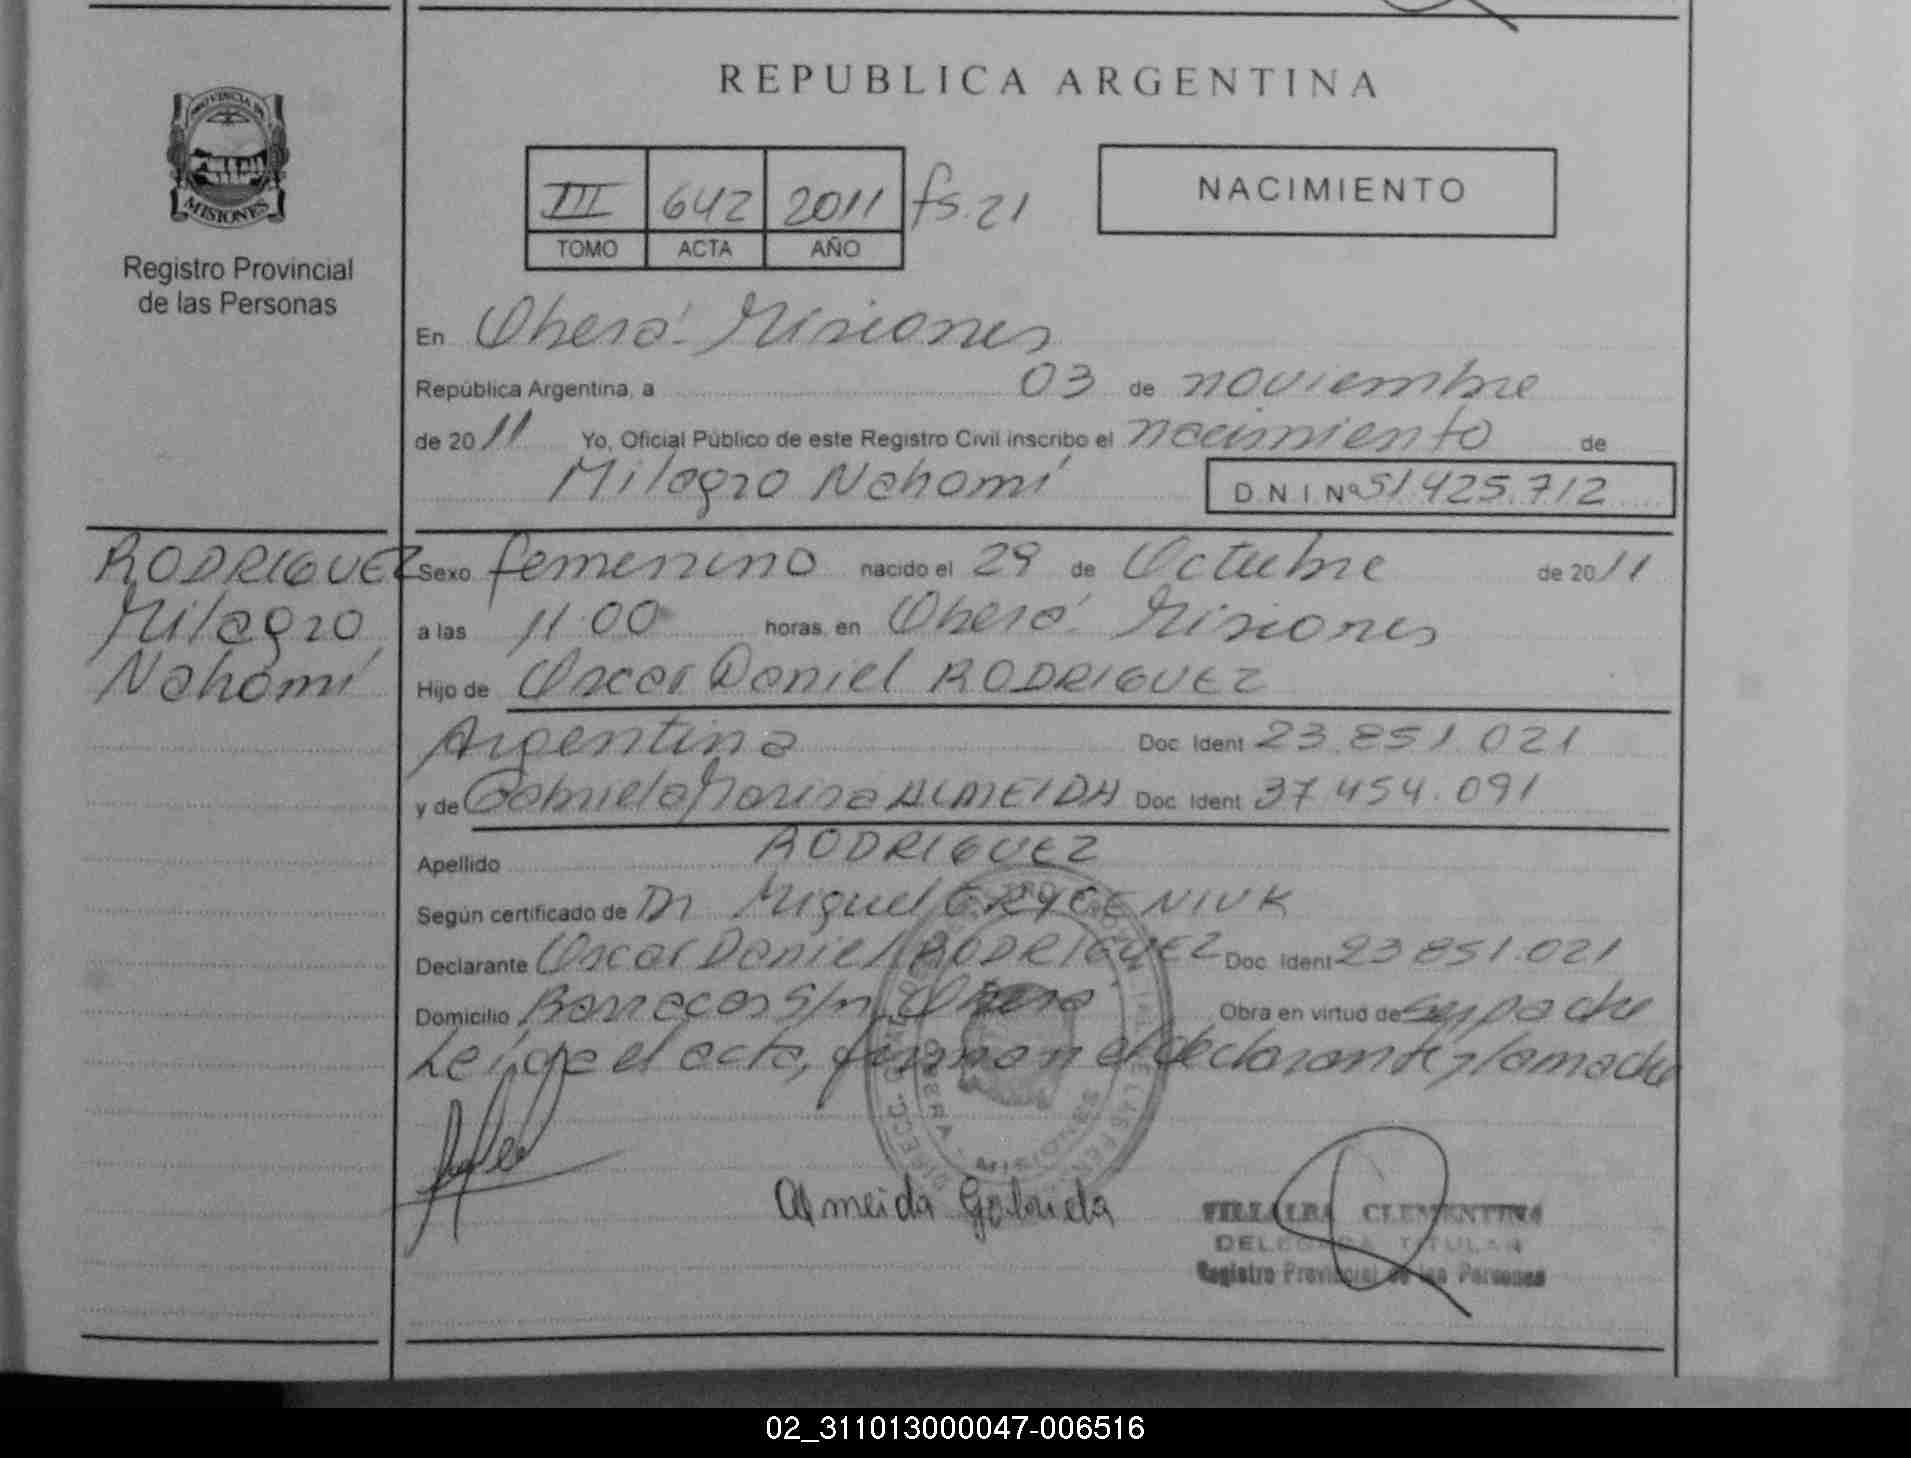 REPUBLICA ARGENTINA
PROVINCIA DE
MISIONES
Registro Provincial
de las Personas
III 642 2011 fs. 21
TOMO ACTA AÑO
NACIMIENTO
En Oberá. Misiones
República Argentina, a 03 de noviembre
de 2011 Yo, Oficial Público de este Registro Civil inscribo el nacimiento de
Milagro Nahomí D N I Nº 51.425.712
RODRIGUEZ
Milagro
Nahomí
Sexo femenino nacido el 29 de Octubre de 2011
a las 11.00 horas, en Oberá. Misiones
Hijo de Oscar Daniel RODRIGUEZ
Argentina Doc Ident 23.851.021
y de Gabriela Marisa ALMEIDA Doc Ident 37.454.091
Apellido RODRIGUEZ
Según certificado de Dr Miguel
Declarante Oscar Daniel RODRIGUEZ Doc Ident 23.851.021
Domicilio Barrecas S/n Oberá Obra en virtud de ser padre
Leída el acta, firman el declarante y la madre
Almeida Gabriela
VILLALBA CLEMENTINA
DELEGADA TITULAR
Registro Provincial de las Personas
MISIONES
02_311013000047-006516